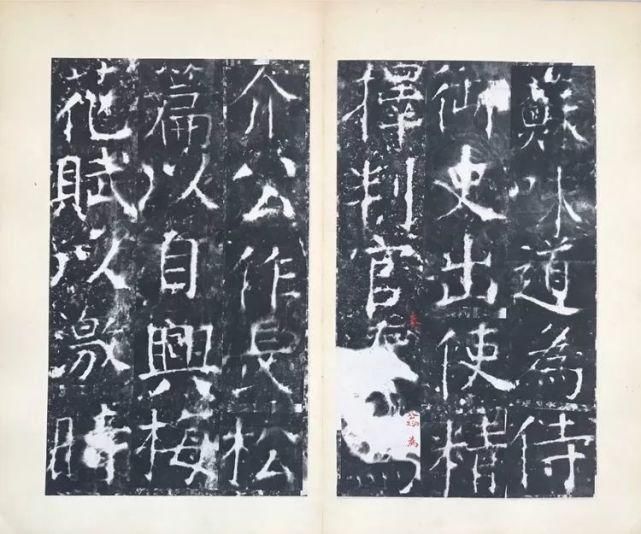 蘇味道為侍
御史出使精
擇判官
奏
公為
介公作長松
篇以自興梅
花賦以激時